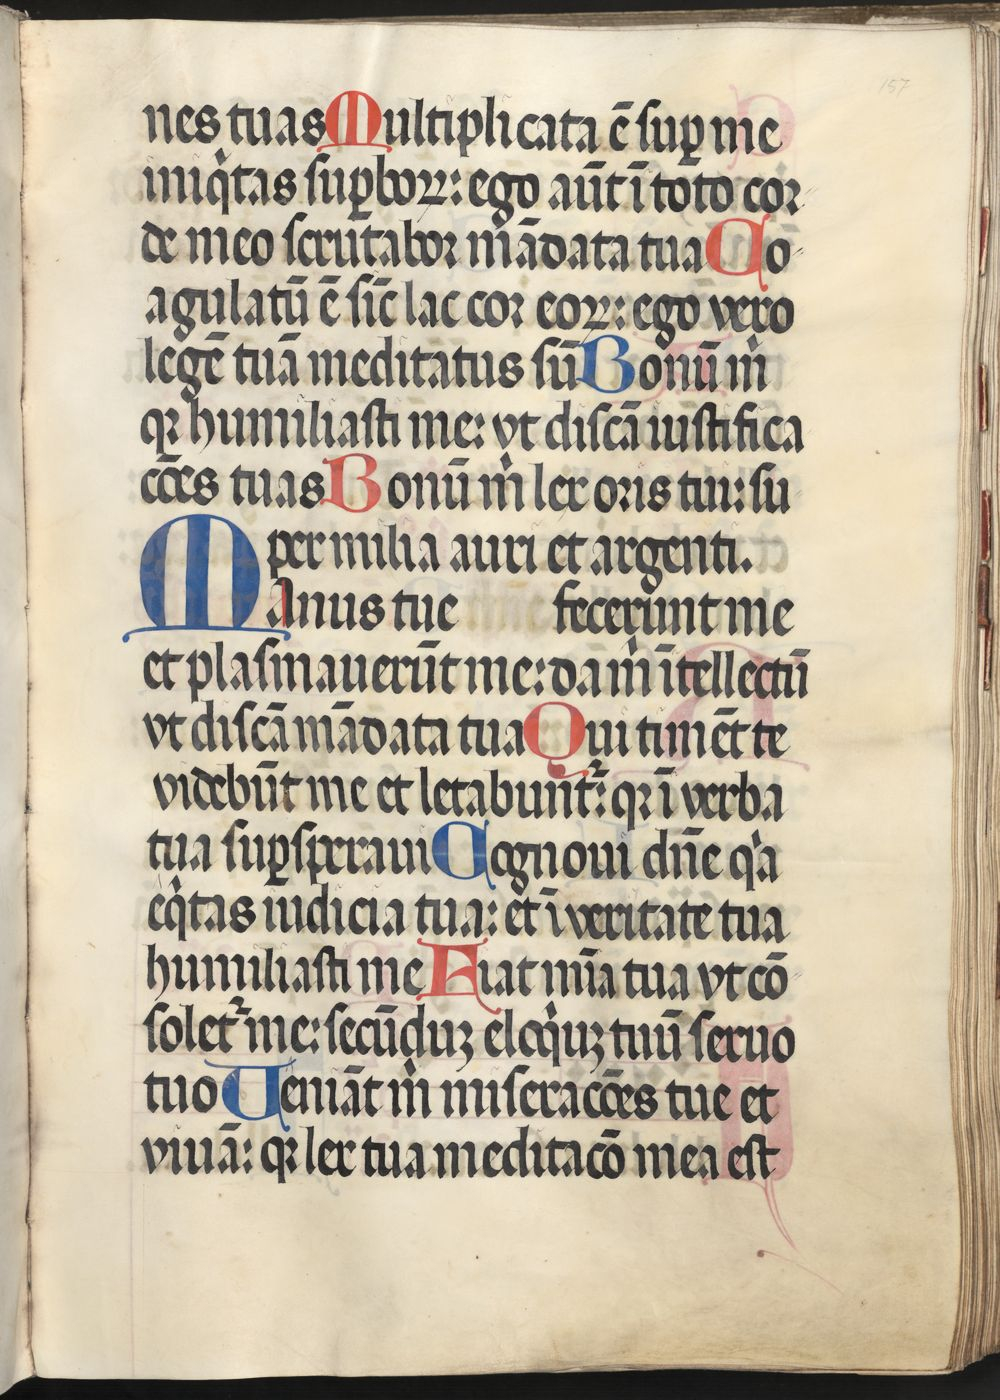 157
nes tuas Multiplicata ē sup̱ me
iniq̇tas sup̱boꝝ: ego aūt ī toto cor
de meo scrutabor mādata tua Co
agulatū ē sīc lac cor eoꝝ: ego vero
legē tuā meditatus sū Bonū m̄
qꝛ humiliasti me: vt discā iustifica
cōēs tuas Bonū m̄ lex oris tui: su
per milia auri et argenti.
Manus tue fecerunt me
et plasmauerūt me: da m̄ ītellectū
vt discā mādata tua Qui timēt te
videbūt me et letabunt᷑: qꝛ ī verba
tua sup̱speraui Cognoui dn̄e qꝛa
eq̇tas iudicia tua: et ī veritate tua
humiliasti me Fiat mīa tua vt cō
solet᷑ me: secūduꝫ eloq̇uꝫ tuū seruo
tuo Veniāt m̄ miseracōēs tue et
viuā: qꝛ lex tua meditacō mea est